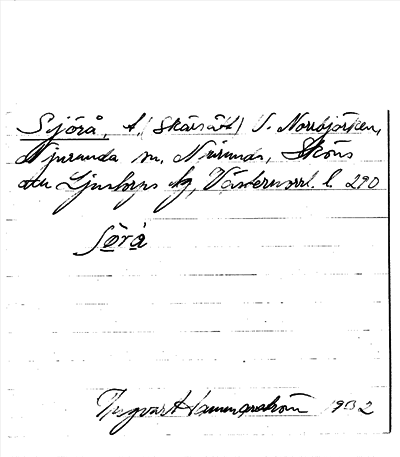 Sijörå, t. (Skärsått) S. Norrbjörken,
Njurunda sn, Njurunda, Sköns
och Ljustorps tlg, Västernorrl. l. 290
Sörå
Ingvar Hammarström 1932